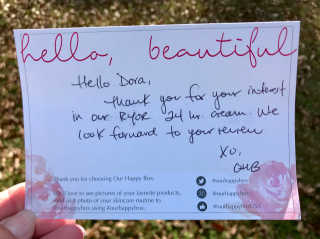 hello, beautiful
Hello Dora,
Thank you for your interest
in our RYOR 24 hr. cream. We
look forward to your review
XO,
OHB
Thank you for choosing Our Happy Box.
love to see pictures of your favorite products,
photo of your skincare routine to
using #ourhappybox.